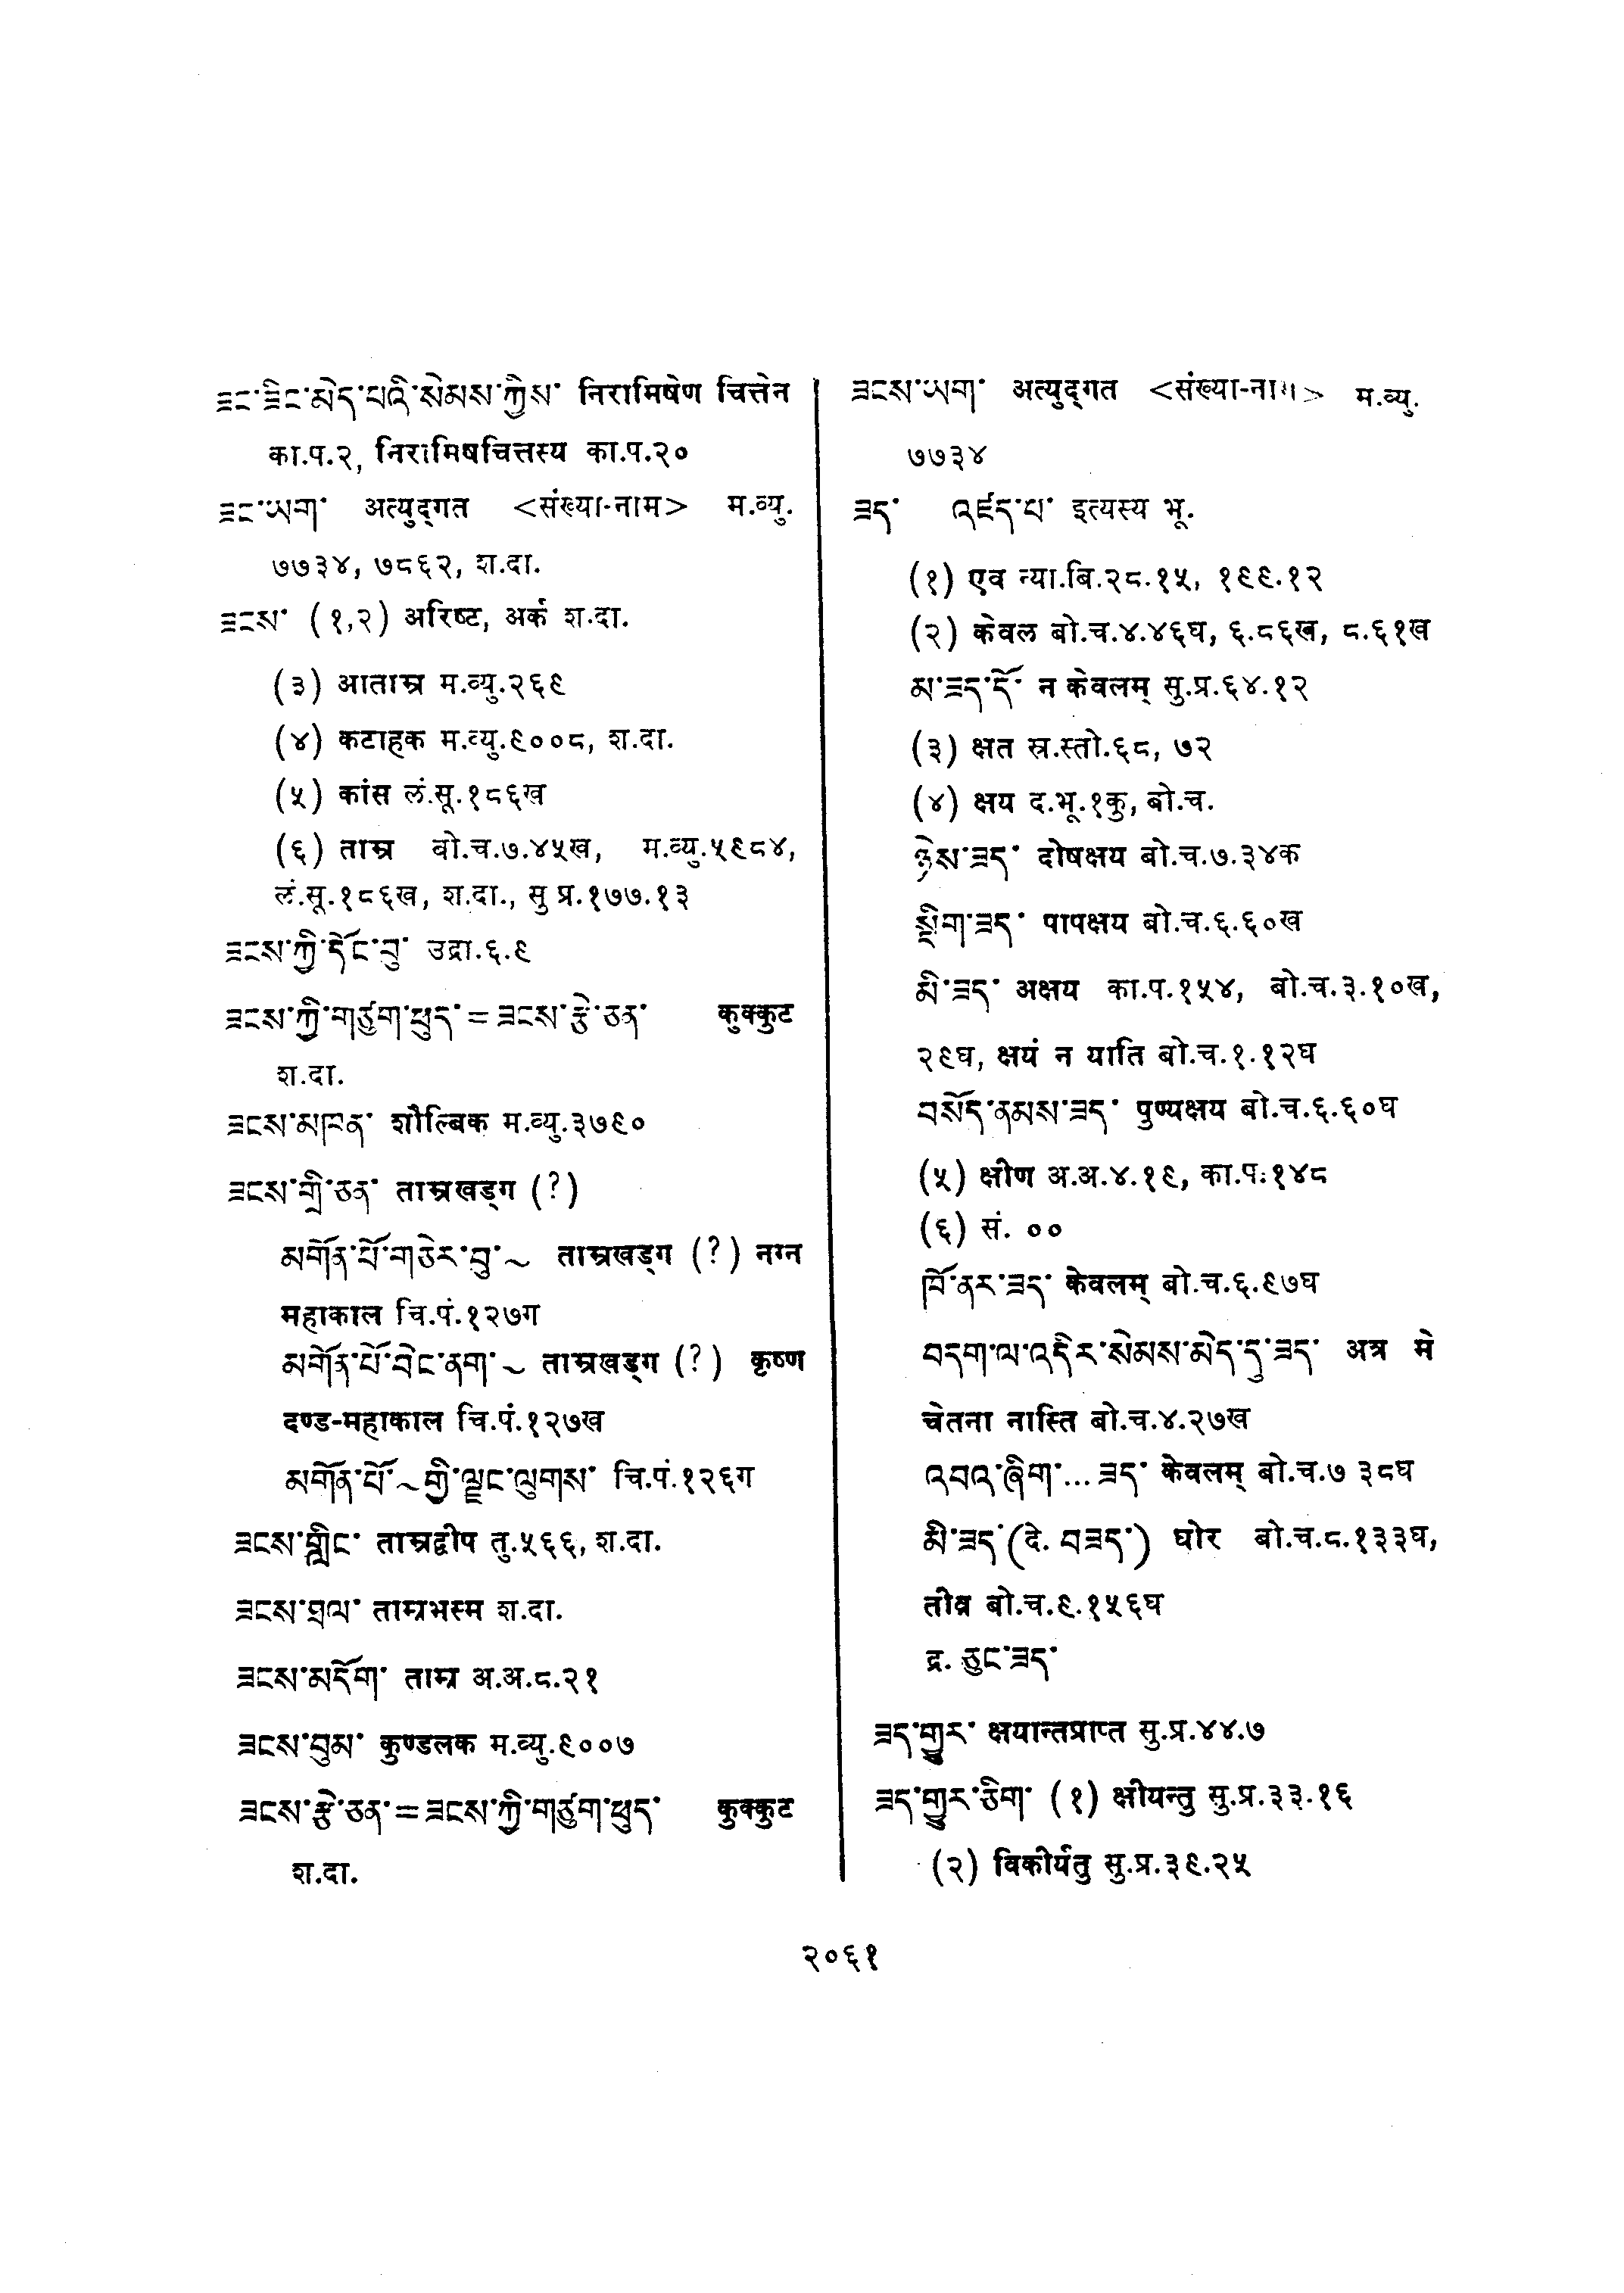 ཟང་ཟིང་མེད་པའི་སེམས་ཀྱིས་ निरामिषेण चित्तेन
का.प.२, निरामिषचित्तस्य का.प.२०
ཟང་ཡག་ अत्युद्गत <संख्या-नाम> म.व्यु.
७७३४, ७८६२, श.दा.
ཟངས་ (१,२) अरिष्ट, अर्क श.दा.
(३) आताम्र म.व्यु.२६९
(४) कटाहक म.व्यु.९००८, श.दा.
(५) कांस लं.सू.१८६ख
(६) ताम्र बो.च.७.४५ख, म.व्यु.५९८४,
लं.सू.१८६ख, श.दा., सु प्र.१७७.१३
ཟངས་ཀྱི་དོང་བུ་ उद्रा.६.९
ཟངས་ཀྱི་གཙུག་ཕུད་ = ཟངས་རྩེ་ཅན་ कुक्कुट
श.दा.
ཟངས་མཁན་ शौल्बिक म.व्यु.३७९०
ཟངས་གྲི་ཅན་ ताम्रखड्ग (?)
མགོན་པོ་གཅེར་བུ་ ~ ताम्रखड्ग (?) नग्न
महाकाल चि.पं.१२७ग
མགོན་པོ་བེང་ནག་ ~ ताम्रखड्ग (?) कृष्ण
दण्ड-महाकाल चि.पं.१२७ख
མགོན་པོ་ ~ གྱི་ལྗང་ལུགས་ चि.पं.१२६ग
ཟངས་གླིང་ ताम्रद्वीप तु.५६६, श.दा.
ཟངས་ཐལ་ ताम्रभस्म श.दा.
ཟངས་མདོག་ ताम्र अ.अ.८.२१
ཟངས་བུམ་ कुण्डलक म.व्यु.९००७
ཟངས་རྩེ་ཅན་ = ཟངས་ཀྱི་གཙུག་ཕུད་ कुक्कुट
श.दा.
ཟངས་ཡག་ अत्युद्गत <संख्या-नाम> म.व्यु.
७७३४
ཟད་ འཛད་པ་ इत्यस्य भू.
(१) एव न्या.बि.२८.१५, १९९.१२
(२) केवल बो.च.४.४६घ, ६.८६ख, ८.६१ख
མ་ཟད་དོ་ न केवलम् सु.प्र.६४.१२
(३) क्षत स्र.स्तो.६८, ७२
(४) क्षय द.भू.१कु, बो.च.
ཉེས་ཟད་ दोषक्षय बो.च.७.३४क
སྡིག་ཟད་ पापक्षय बो.च.६.६०ख
མི་ཟད་ अक्षय का.प.१५४, बो.च.३.१०ख,
२९घ, क्षयं न याति बो.च.१.१२घ
བསོད་ནམས་ཟད་ पुण्यक्षय बो.च.६.६०घ
(५) क्षीण अ.अ.४.१९, का.प.१४८
(६) सं. ००
ཁོ་ནར་ཟད་ केवलम् बो.च.६.९७घ
བདག་ལ་འདིར་སེམས་མེད་དུ་ཟད་ अत्र मे
चेतना नास्ति बो.च.४.२७ख
འབའ་ཞིག་... ཟད་ केवलम् बो.च.७ ३८घ
མི་ཟད་ (दे. བཟད་) घोर बो.च.८.१३३घ,
तीव्र बो.च.९.१५६घ
द्र. ཅུང་ཟད་
ཟད་གྱུར་ क्षयान्तप्राप्त सु.प्र.४४.७
ཟད་གྱུར་ཅིག་ (१) क्षीयन्तु सु.प्र.३३.१६
(२) विकीर्यतु सु.प्र.३९.२५
२०६१